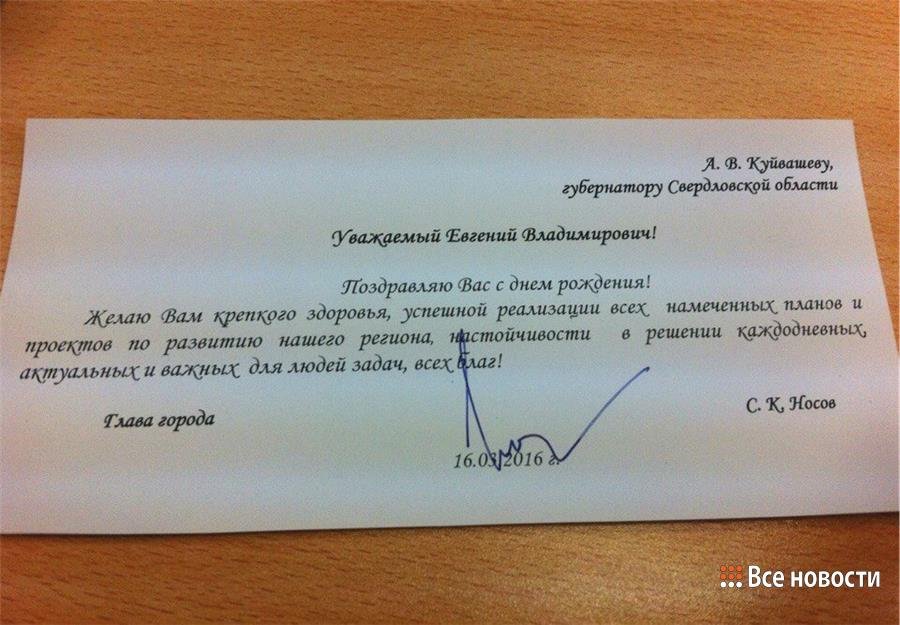 А. В. Куйвашеву,
губернатору Свердловской области
Уважаемый Евгений Владимирович!
Поздравляю Вас с днем рождения!
Желаю Вам крепкого здоровья, успешной реализации всех намеченных планов и
проектов по развитию нашего региона, настойчивости в решении каждодневных,
актуальных и важных для людей задач, всех благ!
Глава города
С. К. Носов
16.03.2016 г.
Все новости